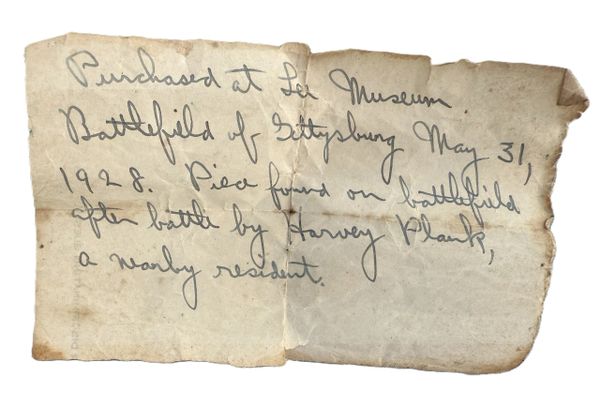 Purchased at Lee Museum
Battlefield of Gettysburg May 31,
1928. Piece found on battlefield
after battle by Harvey Plank,
a nearby resident.